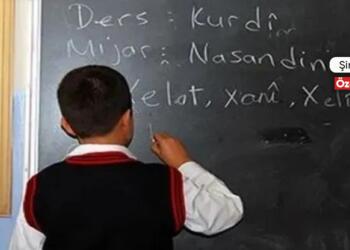 Ders : Kurdî
Mijar : Nasandin
Xelat, xanî, Xelî
Şir
Öz